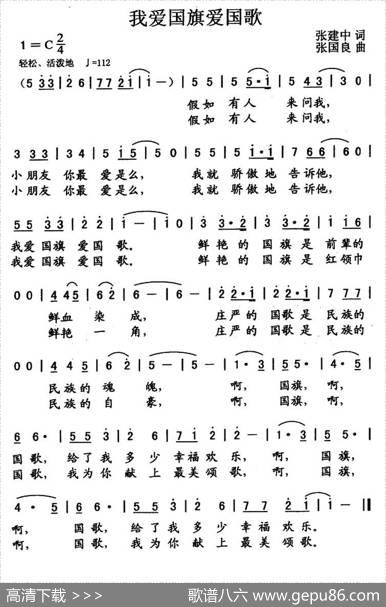 我爱国旗爱国歌
1=C 2/4
张建中 词
张国良 曲
轻松、活泼地 ♩=112
(5 33|3 26|7 7 2 1|1 -)|5 5|5 5·1|3·2 5|
假如 有人 来问我,
假如 有人 来问我,
3 33 3|3 4|5 15|5 0|5 5|1·1 5 5|6 7 6 3|3 0|
小朋友 你最 爱是么, 我就 骄傲地 告诉他,
小朋友 你最 爱是么, 我就 骄傲地 告诉他,
55 33|2 2|1 -|1 0|3 3·2|3 3·2|1 1 6|
我爱国旗 爱国 歌。 鲜艳的 国旗是 前辈的
我爱国旗 爱国 歌。 鲜艳的 国旗是 红领巾
0 0|4 45|6 2|6 -|6 -|2 2·1|2 2·1|7 7 7|
鲜血 染成, 庄严的 国歌是 民族的
鲜艳 一角, 庄严的 国歌是 民族的
0 0|4 4 5|6 2|5 -|5 -|1·3|5 5·|4·5|
民族的 魂魄, 啊, 国旗,啊,
民族的 自豪, 啊, 国旗,啊,
6 6·|5 5 3|3 2|6 2|7 1 2|2 -|1·3|5 5·|
国歌, 给了我 多少 幸福欢乐, 啊, 国旗,
国歌, 我为你 献上 最美颂歌, 啊, 国旗,
4·5|6 6·|5 5 3|3 2|6 2|7 7|2 1|1 -‖
啊, 国歌, 给了我 多少 幸福 欢乐。
啊, 国歌, 我为你 献上 最美 颂歌。
高清下载 >>>
歌谱八六 www.gepu86.com